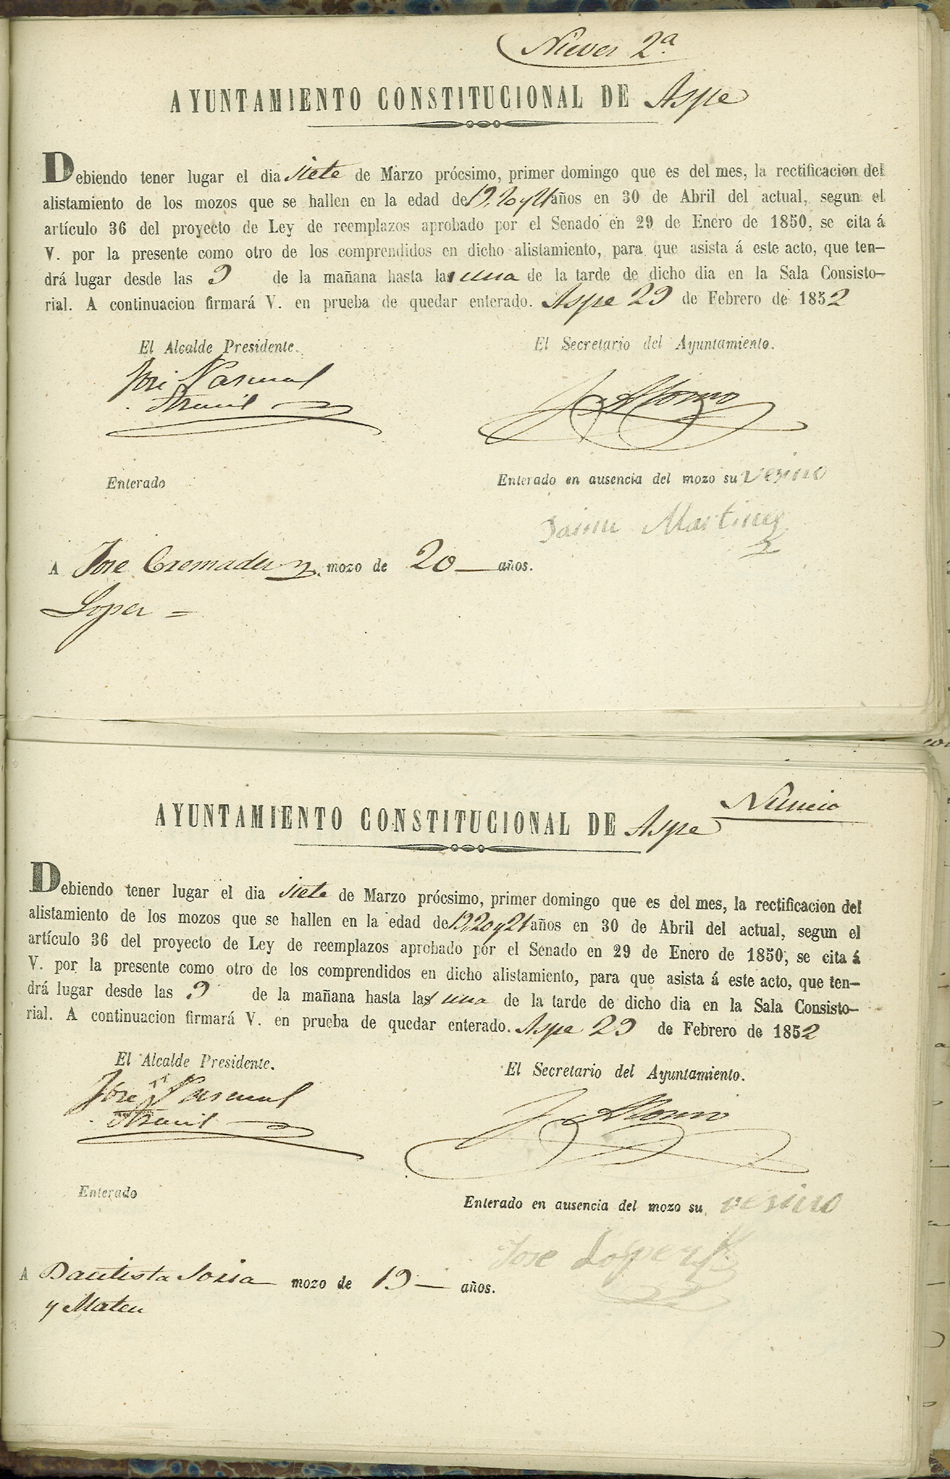 Nieves 2ª
AYUNTAMIENTO CONSTITUCIONAL DE Aspe
Debiendo tener lugar el dia siete de Marzo prócsimo, primer domingo que es del mes, la rectificacion del
alistamiento de los mozos que se hallen en la edad de 19, 20 y 21 años en 30 de Abril del actual, segun el
artículo 36 del proyecto de Ley de reemplazos aprobado por el Senado en 29 de Enero de 1850, se cita á
V. por la presente como otro de los comprendidos en dicho alistamiento, para que asista á este acto, que ten-
drá lugar desde las 9 de la mañana hasta las una de la tarde de dicho dia en la Sala Consisto-
rial. A continuacion firmará V. en prueba de quedar enterado. Aspe 29 de Febrero de 1852
El Alcalde Presidente. El Secretario del Ayuntamiento.
José Pascual J. Alonso
Enterado Enterado en ausencia del mozo su vesino
Jaime Martinez
A Jose Cremades y mozo de 20 años.
Lopez
AYUNTAMIENTO CONSTITUCIONAL DE Aspe Nuncio
Debiendo tener lugar el dia siete de Marzo prócsimo, primer domingo que es del mes, la rectificacion del
alistamiento de los mozos que se hallen en la edad de 19, 20 y 21 años en 30 de Abril del actual, segun el
artículo 36 del proyecto de Ley de reemplazos aprobado por el Senado en 29 de Enero de 1850, se cita á
V. por la presente como otro de los comprendidos en dicho alistamiento, para que asista á este acto, que ten-
drá lugar desde las 9 de la mañana hasta las una de la tarde de dicho dia en la Sala Consisto-
rial. A continuacion firmará V. en prueba de quedar enterado. Aspe 29 de Febrero de 1852
El Alcalde Presidente. El Secretario del Ayuntamiento.
José Pascual J. Alonso
Enterado Enterado en ausencia del mozo su vesino
Jose Lopez
A Bautista Soria mozo de 19 años.
y Mateu